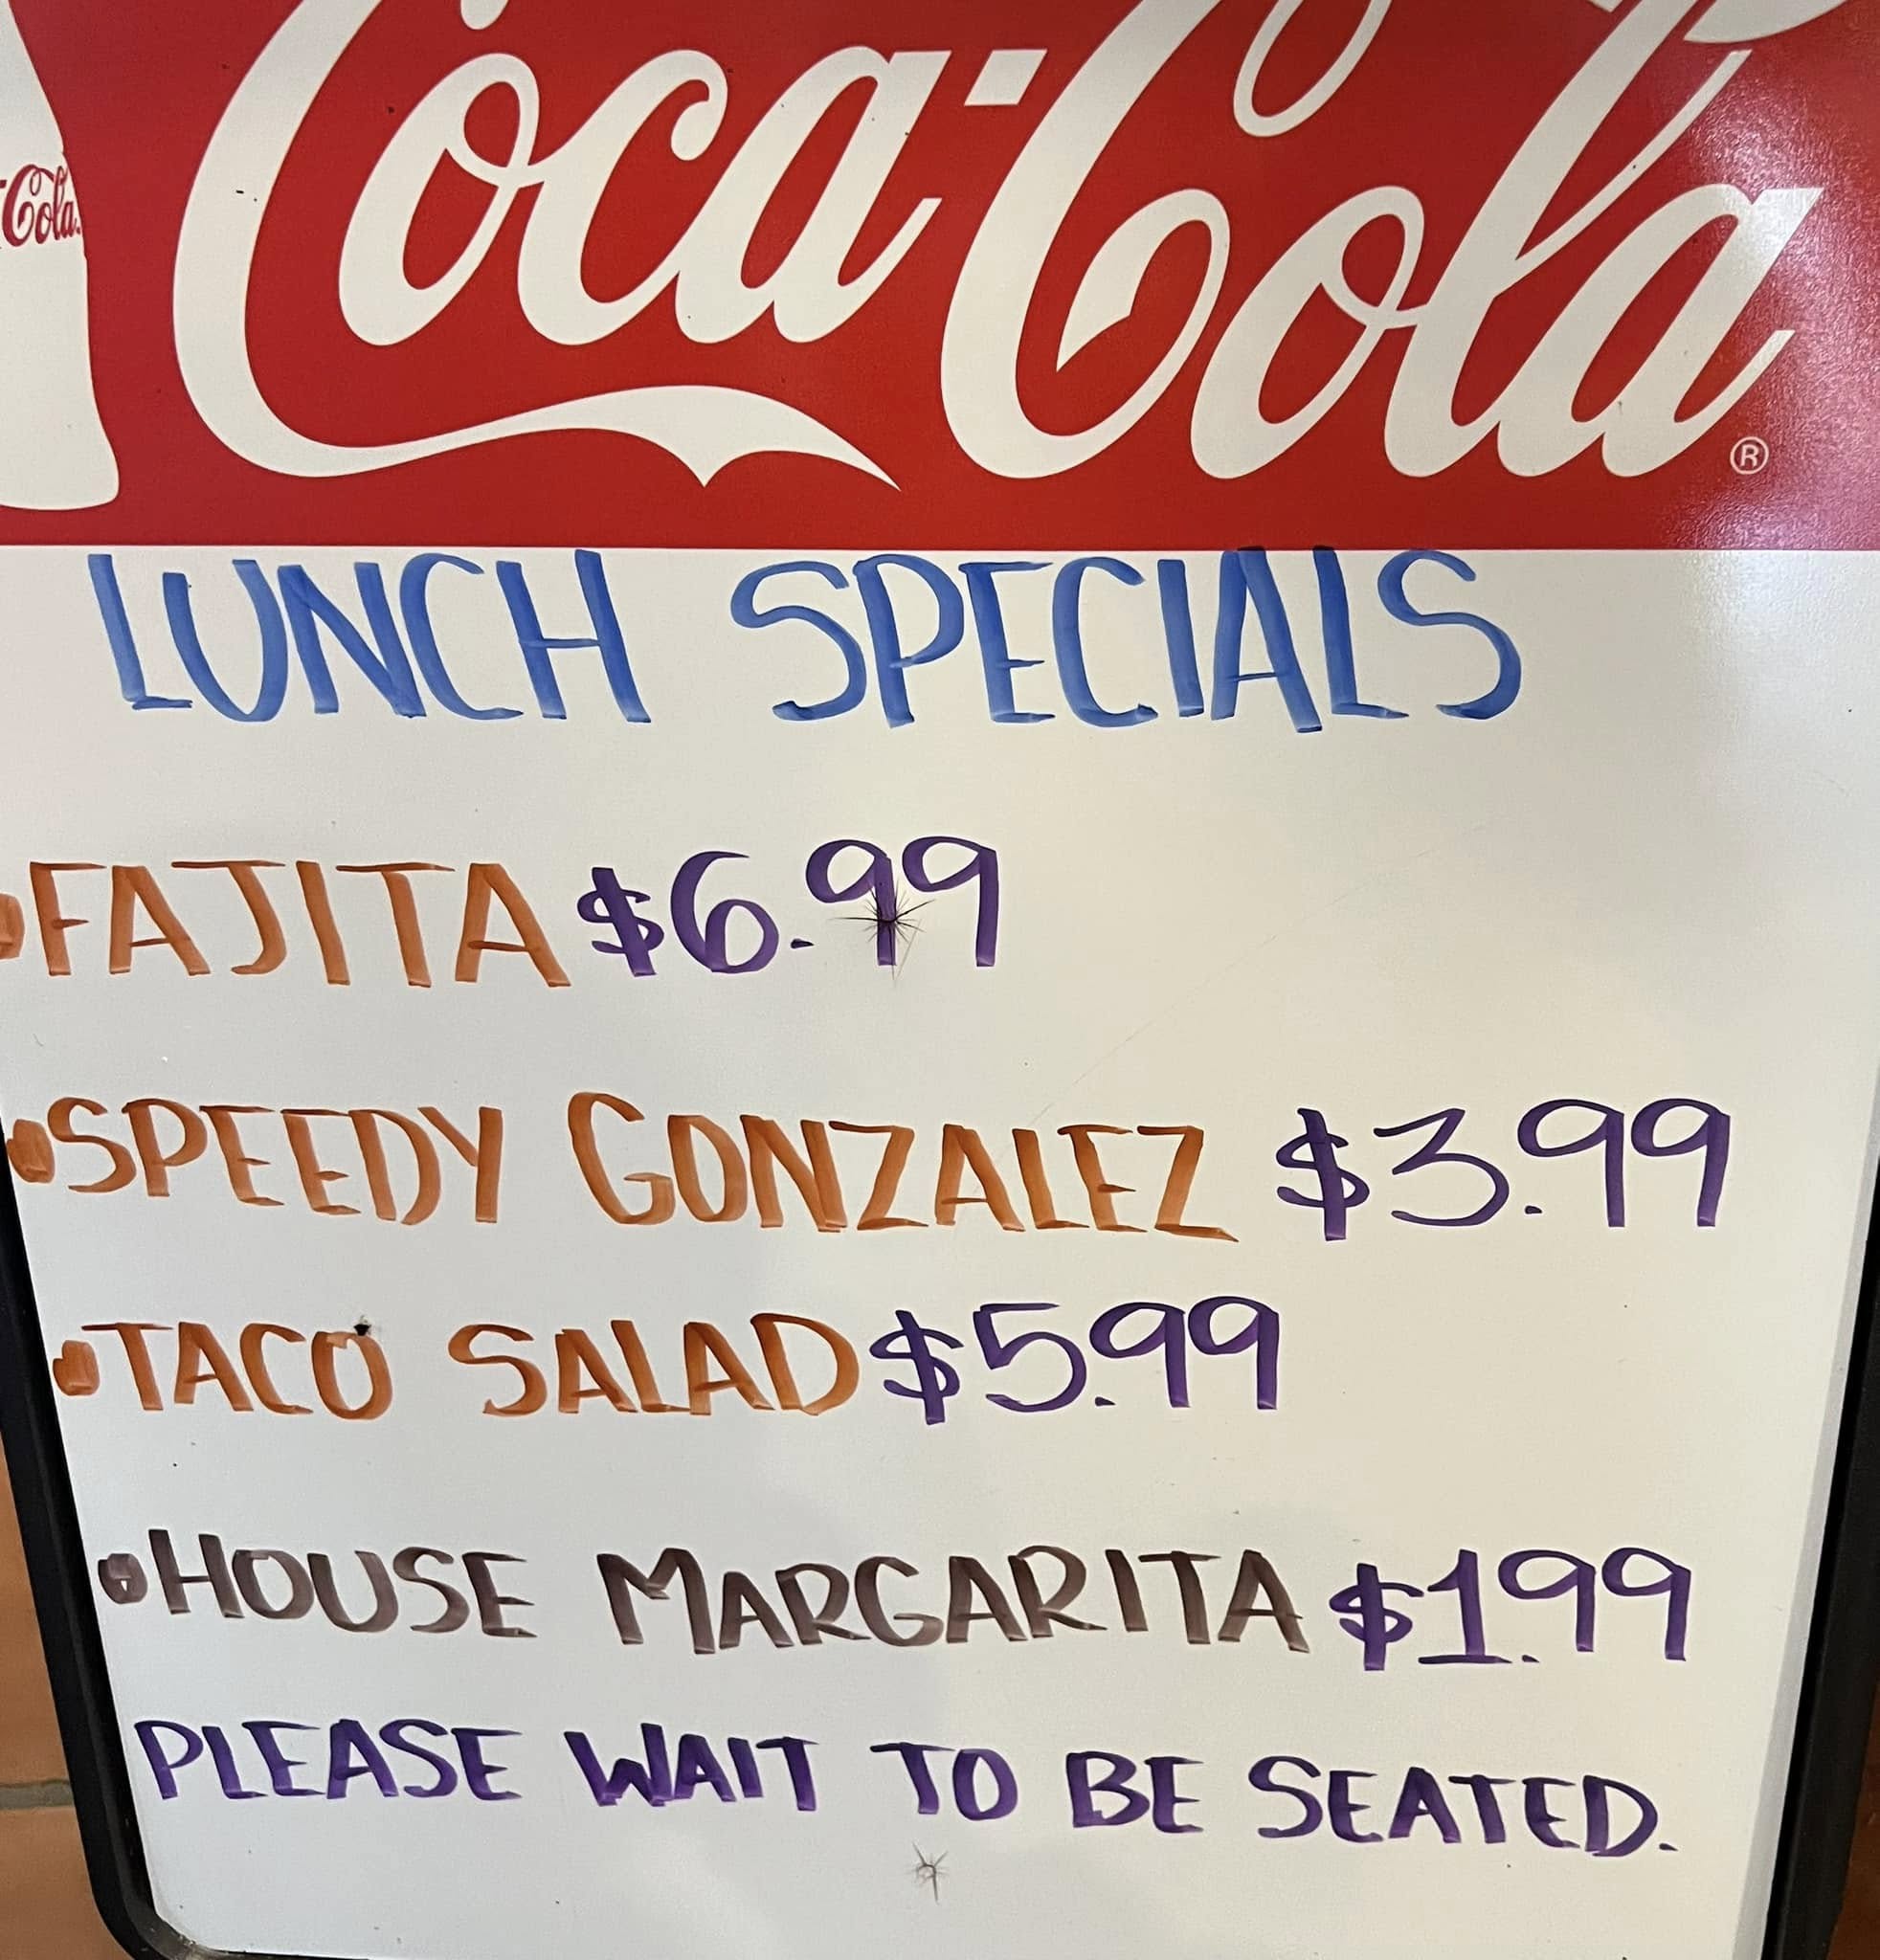 Coca-Cola®
Cola
LUNCH SPECIALS
•FAJITA $6.99
•SPEEDY GONZALEZ $3.99
•TACO SALAD $5.99
•HOUSE MARGARITA $1.99
PLEASE WAIT TO BE SEATED.